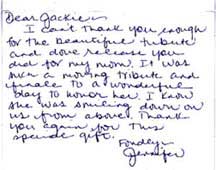 Dear Jackie -
I can't thank you enough
for the beautiful tribute
and dove release you
did for my mom. It was
such a moving tribute and
finale to a wonderful
day to honor her. I know
she was smiling down on
us from above. Thank
you again for this
special gift.
Fondly,
Jennifer